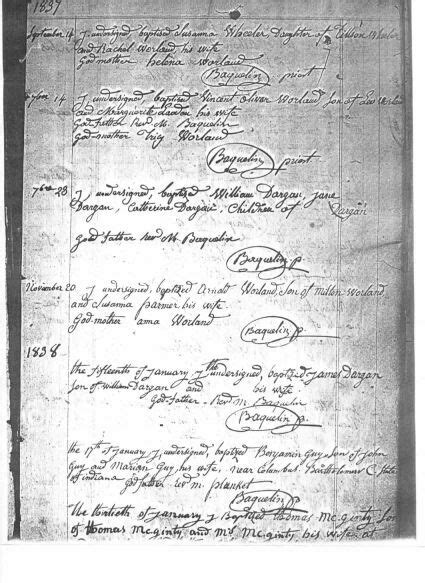 1837
September 14 I, undersigned, baptised Susanna Wheeler Daughter of Wheeler
and Rachel Worland, his wife
god mother helena Worland
Baquelin priest
14 I, undersigned, baptised Vincent Oliver Worland, Son of Leo Worland
and Marguerite his wife
god-father Rev. M. Baquelin
god-mother Worland
Baquelin priest
28 I, undersigned, baptized William Dargan, jane
Dargan, Catherine Dargan, Children of Dargan
god father Rev M. Baquelin
Baquelin p.
November 20 I undersigned, baptized Arnold Worland, Son of milton Worland
and Susanna parmer his wife
God-mother anna Worland
Baquelin p.
1838
the fifteenth of January I the undersigned, baptized James Dargan
son of William Dargan and his wife
God-father - Rev. M. Baquelin
Baquelin p.
the 17th of January I, undersigned, baptized Benjamin Guy, son of John
Guy and Marian Guy, his wife, near Columbus. Bartholomew C. State
of indiana god father rev M. plunket
Baquelin p.
the thirtieth of January I Baptised Thomas McGinty son
of Thomas McGinty and Mrs McGinty his wife at